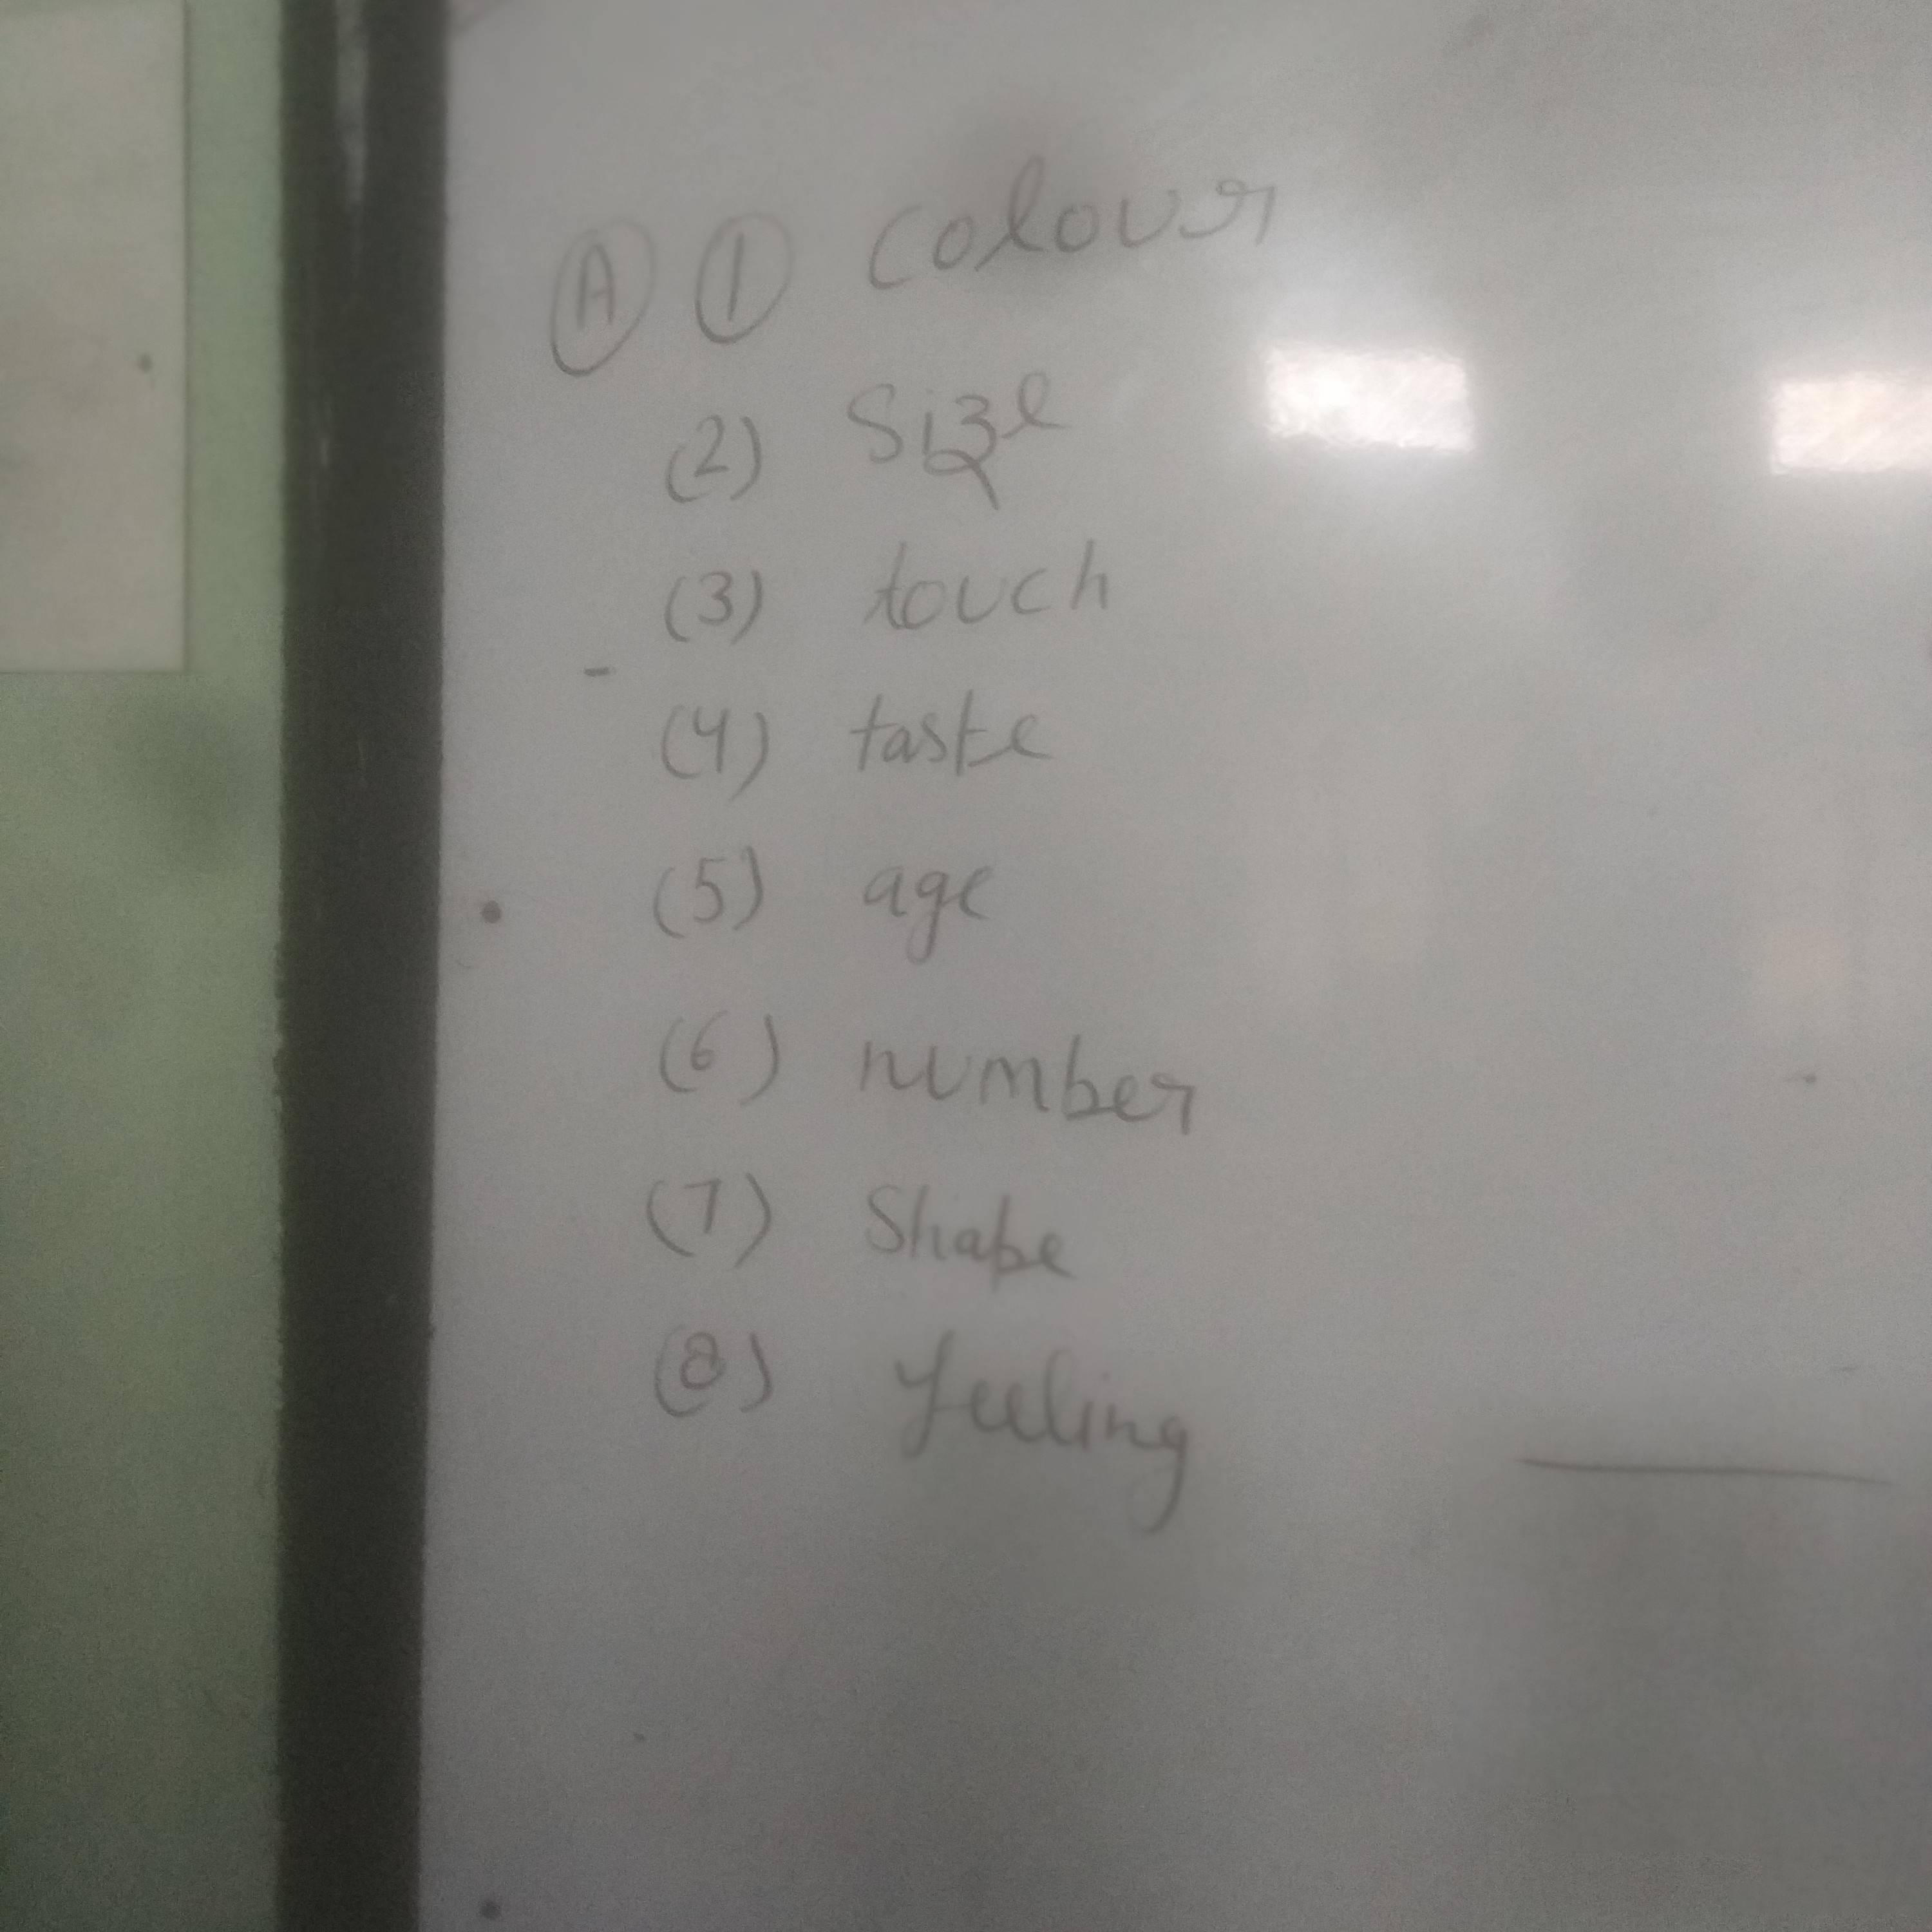 A 1 colour
(2) Size
(3) touch
(4) taste
(5) age
(6) number
(7) Shape
(8) feeling